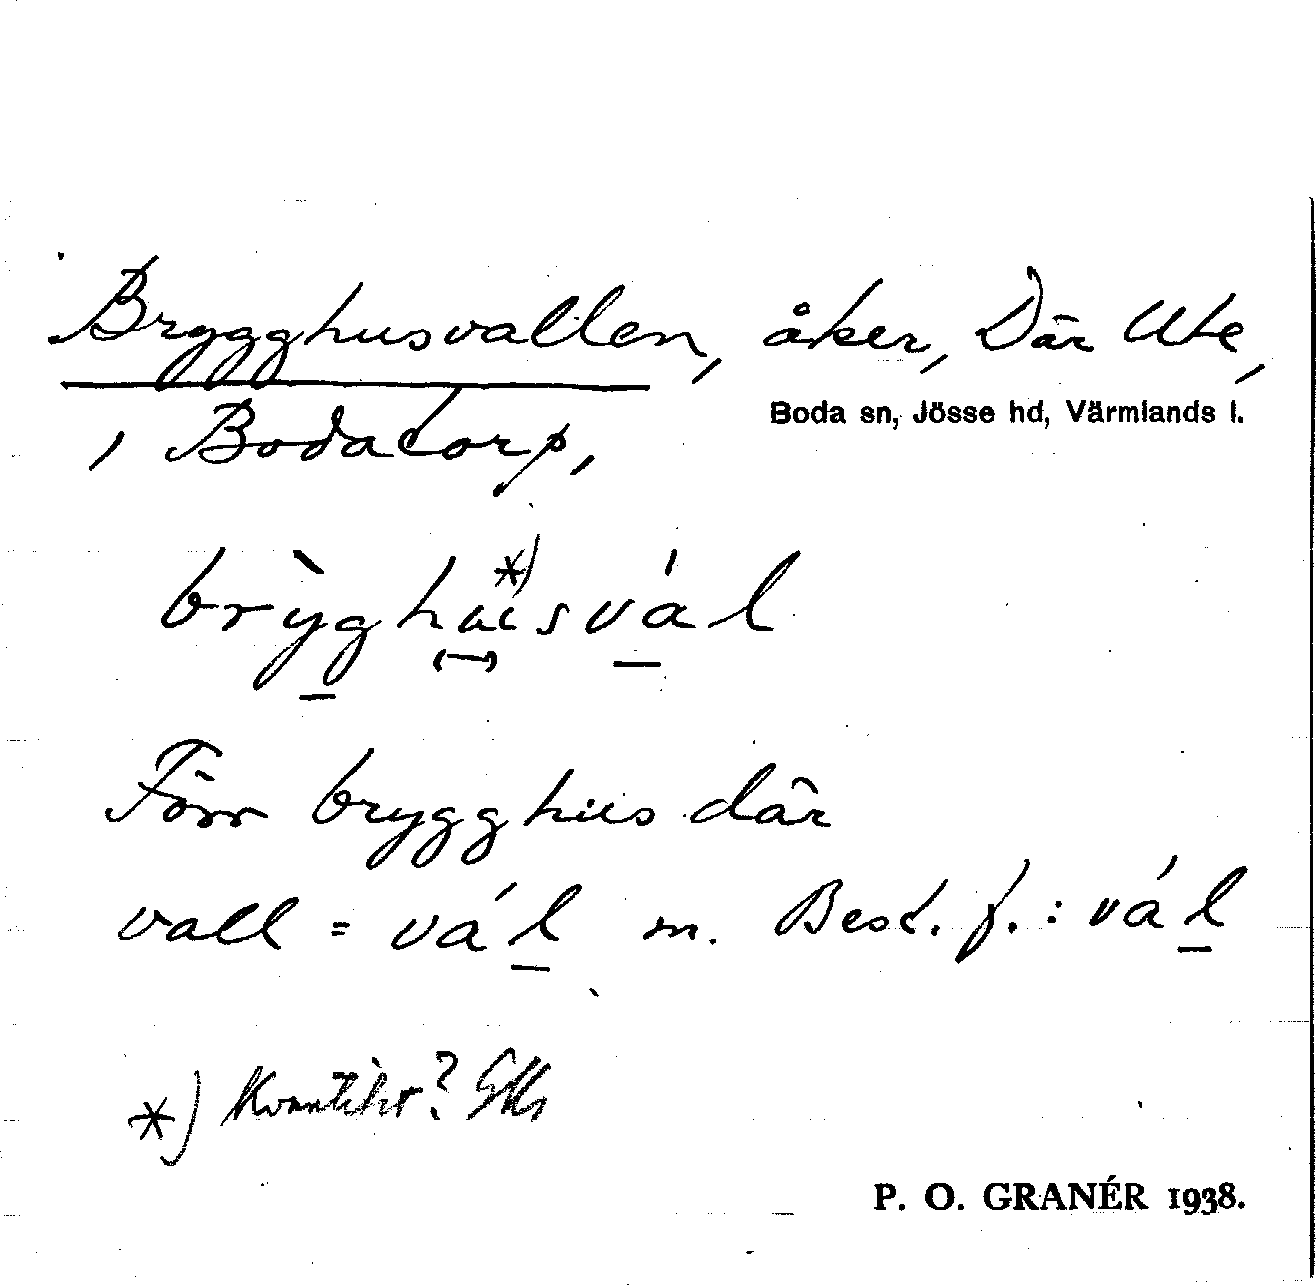 Brygghusvallen, åker, Där Ute,
Boda sn, Jösse hd, Värmlands l.
, Bodatorp,
brỳghüs*)vál
Förr brygghus där
vall = vál m. Best. f.: vál
*) Kvantitet?
P. O. GRANÉR 1938.